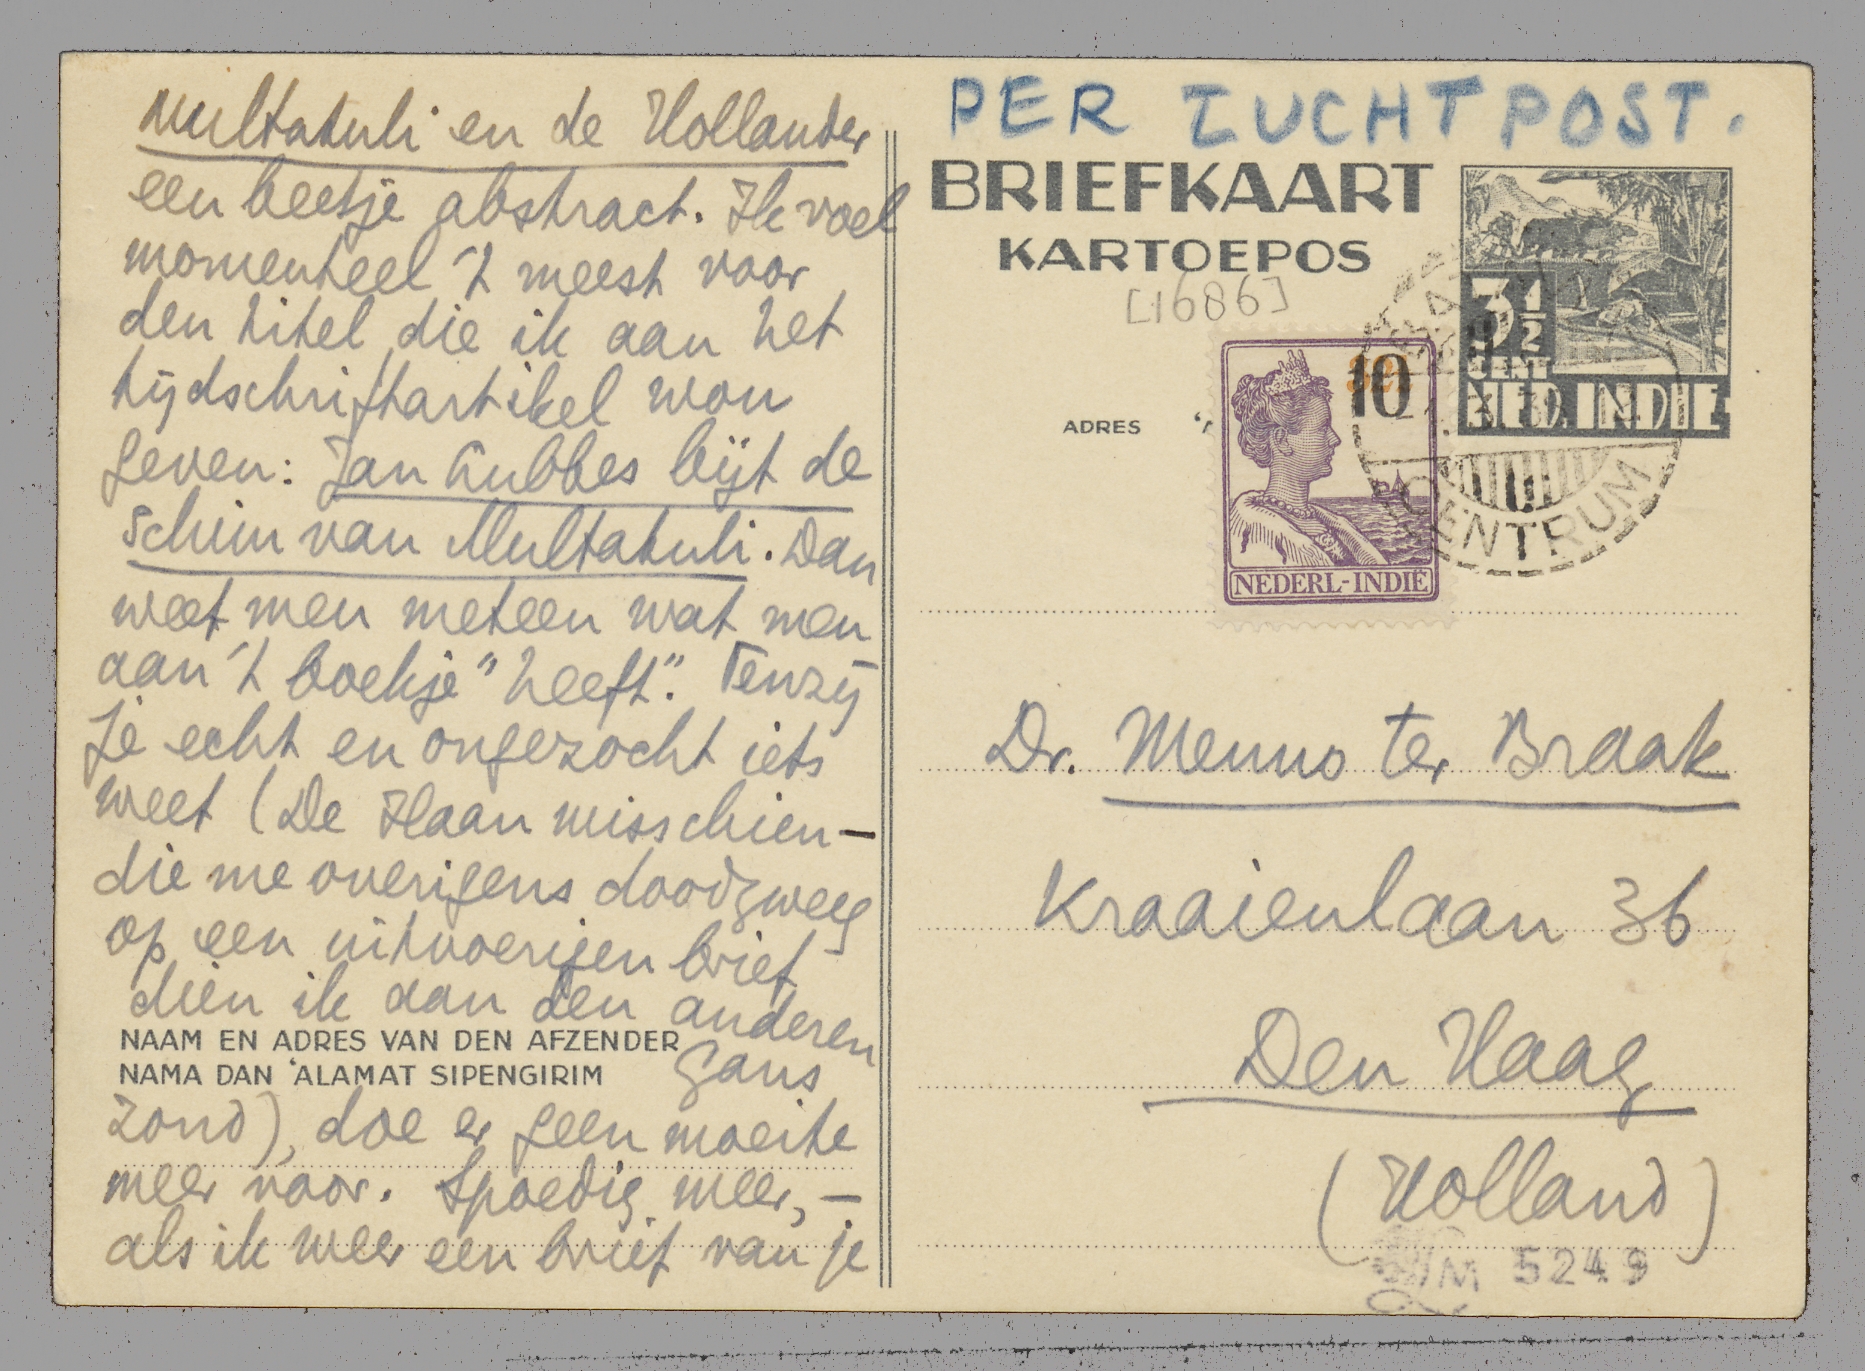 Multatuli en de Hollander
een beetje abstract. Ik voel
momenteel 't meest voor
den titel die ik aan het
tijdschriftartikel wou
geven: Jan Lubbes bijt de
schim van Multatuli. Dan
weet men meteen wat men
aan 't boekje "heeft". Tenzij
je echt en ongezocht iets
weet (De Haan misschien –
die me overigens doodzweeg
op een uitvoerigen brief
dien ik aan den anderen
NAAM EN ADRES VAN DEN AFZENDER
NAMA DAN 'ALAMAT SIPENGIRIM
Gans
zond), doe er geen moeite
meer voor. Spoedig meer, –
als ik weer een brief van je
PER LUCHTPOST.
BRIEFKAART
KARTOEPOS
[1686]
3 1/2
CENT
NED. INDIE
10
ADRES
CENTRUM
NEDERL-INDIË
Dr. Menno ter Braak
Kraaienlaan 36
Den Haag
(Holland)
M 5249